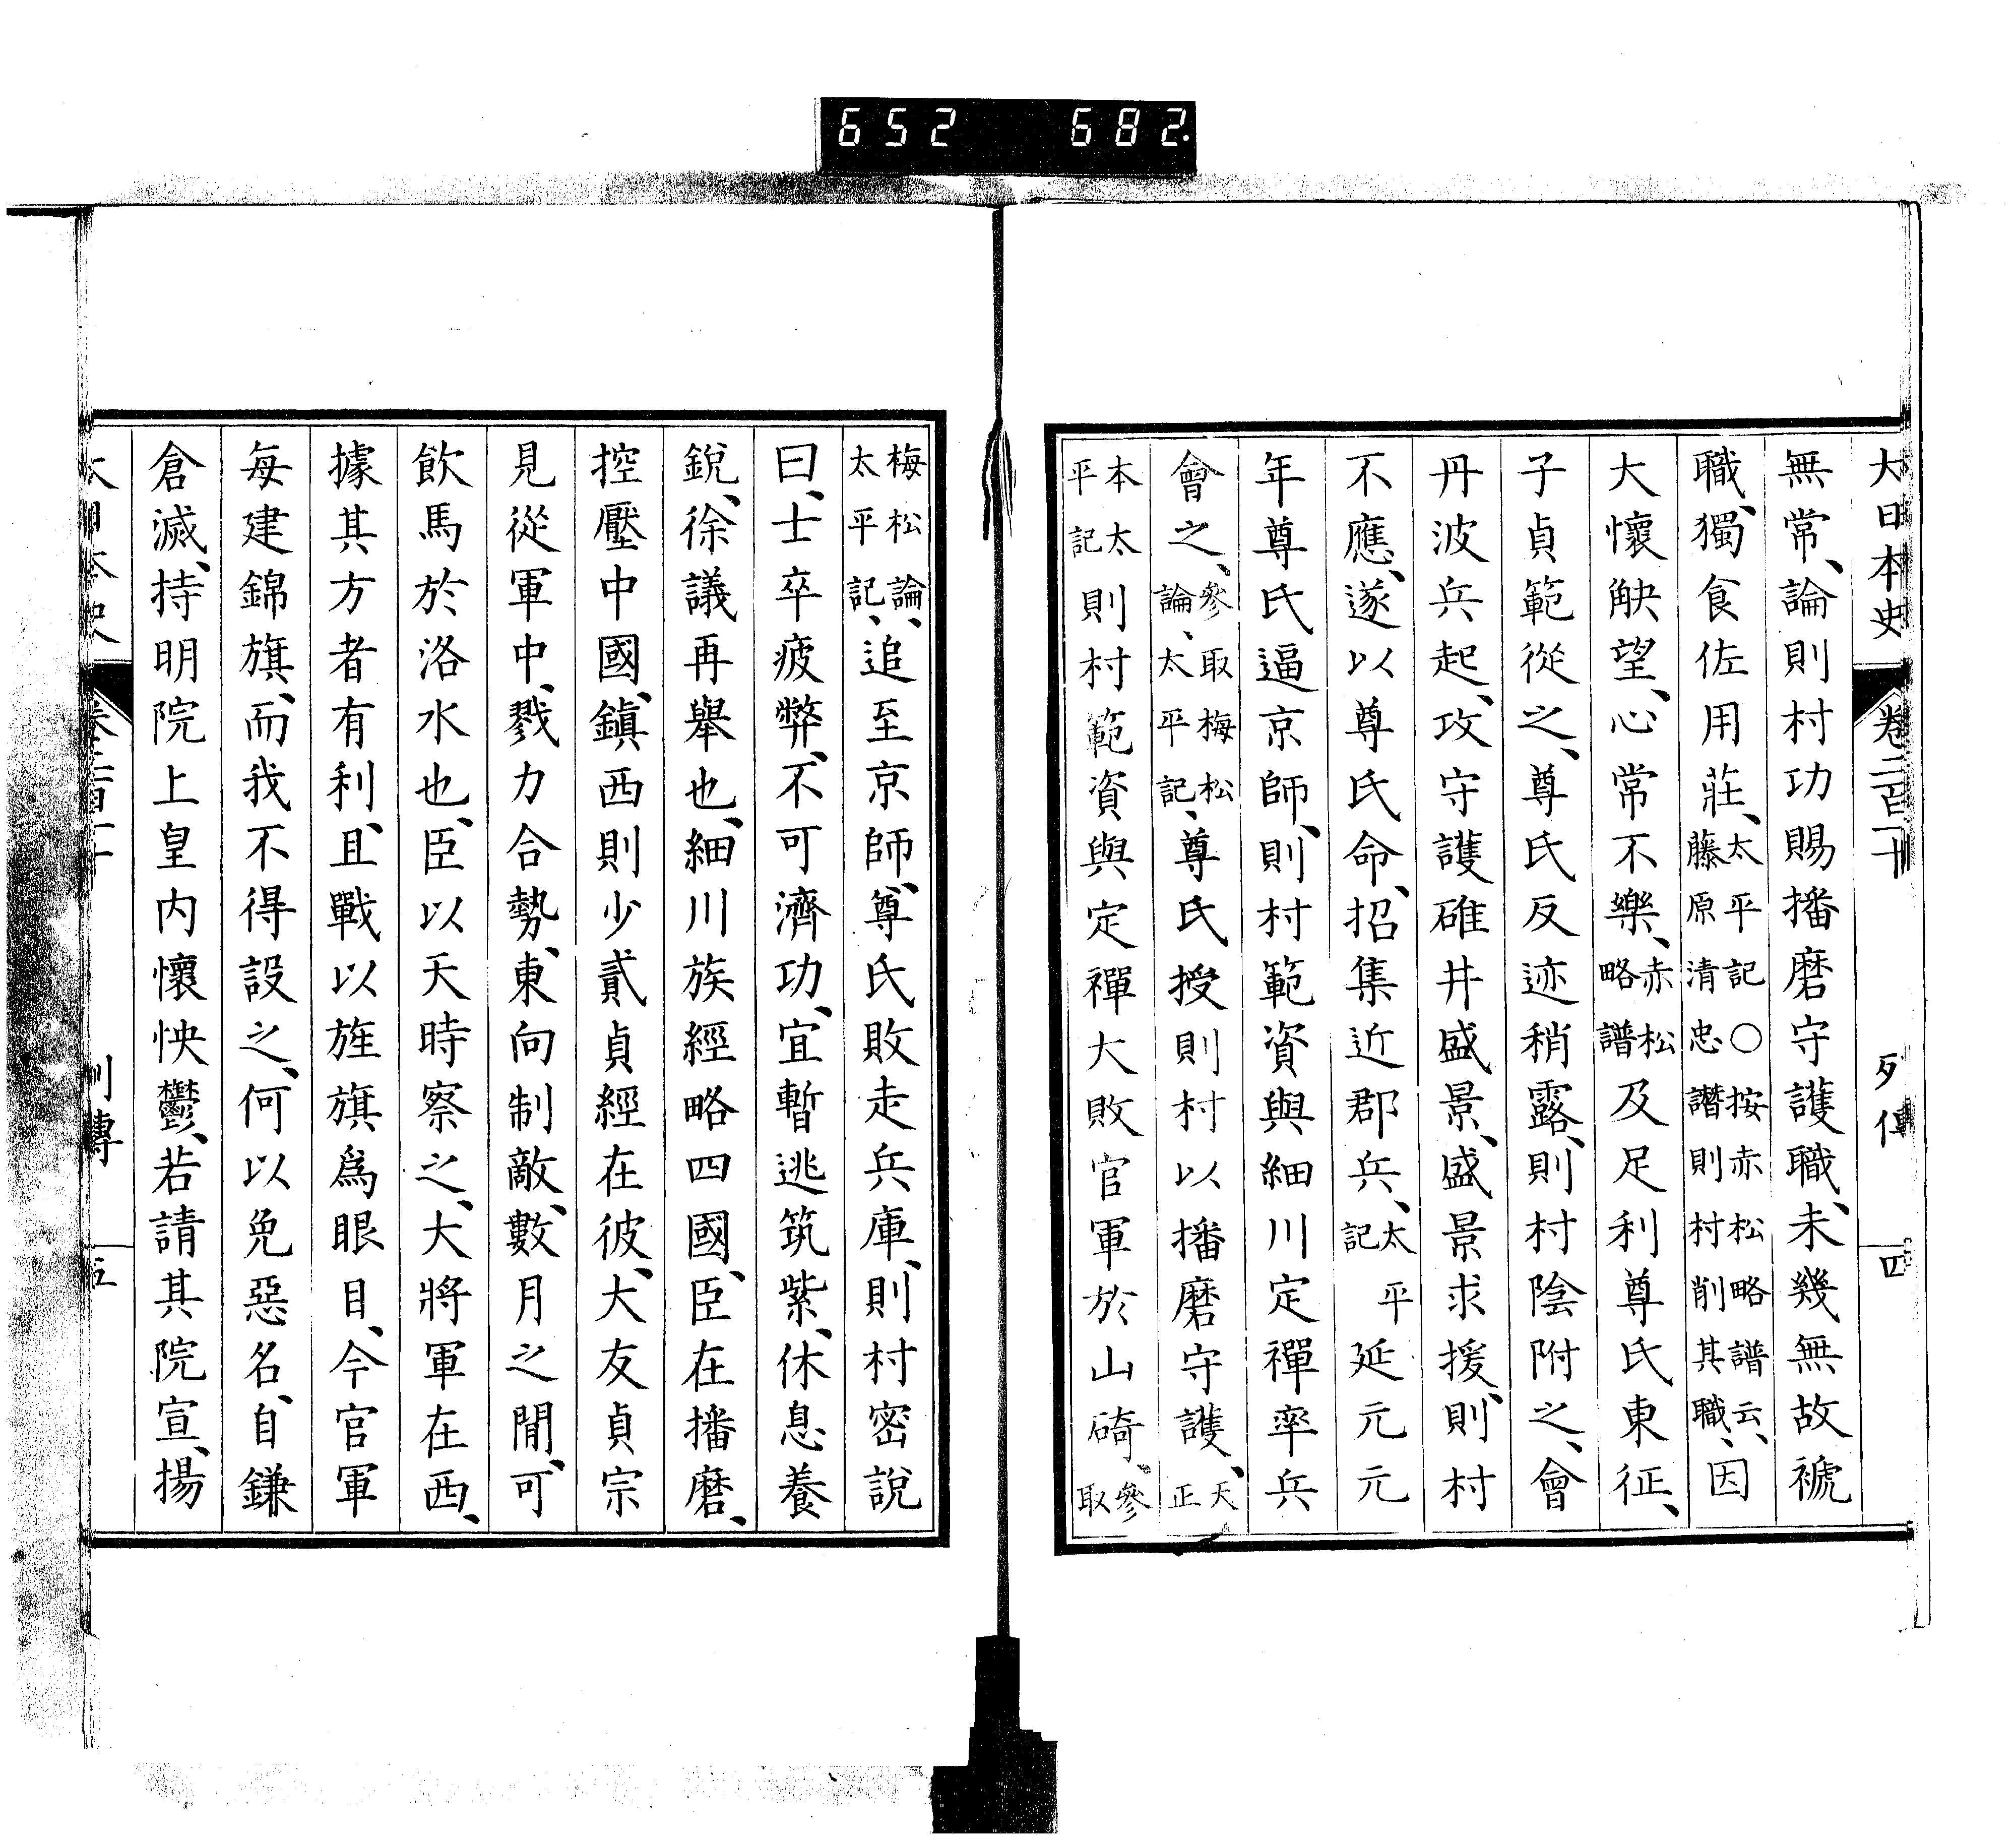 652 682
大日本史 卷二百一十 列傳 四
無常、論則村功賜播磨守護職、未幾無故褫
職、獨食佐用莊、太平記○按赤松略譜云、藤原清忠譖則村削其職、因
大懷觖望、心常不樂、赤松略譜及足利尊氏東征、
子貞範從之、尊氏反迹稍露、則村陰附之、會
丹波兵起、攻守護碓井盛景、盛景求援、則村
不應、遂以尊氏命、招集近郡兵、太平記延元元
年尊氏逼京師、則村範資與細川定禪率兵
會之、參取梅松論、太平記、尊氏授則村以播磨守護、天正
本太平記則村範資與定禪大敗官軍於山碕、參取
梅松論、太平記、追至京師、尊氏敗走兵庫、則村密說
曰、士卒疲弊、不可濟功、宜暫逃筑紫、休息養
銳、徐議再舉也、細川族經略四國、臣在播磨、
控壓中國、鎭西則少貳貞經在彼、大友貞宗
見從軍中、戮力合勢、東向制敵、數月之閒、可
飲馬於洛水也、臣以天時察之、大將軍在西、
據其方者有利、且戰以旌旗爲眼目、今官軍
每建錦旗、而我不得設之、何以免惡名、自鎌
倉滅、持明院上皇内懷怏鬱、若請其院宣、揚
大日本史 卷二百一十 列傳 五